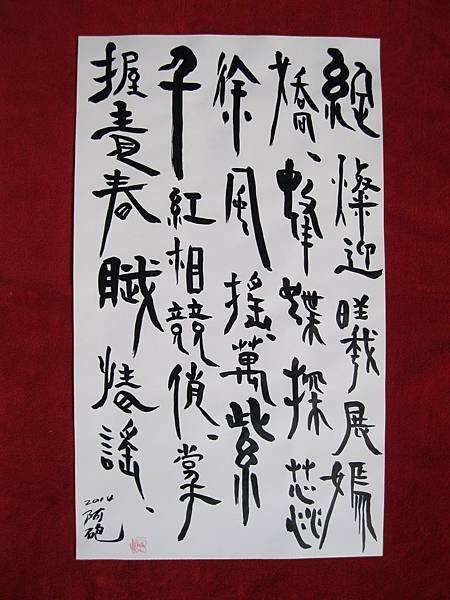 綻燦迎曦展嫣
嬌、蜂蝶探蕊
徐風搖、萬紫
千紅相競俏、掌
握青春賦情謠、
2014
阿砲